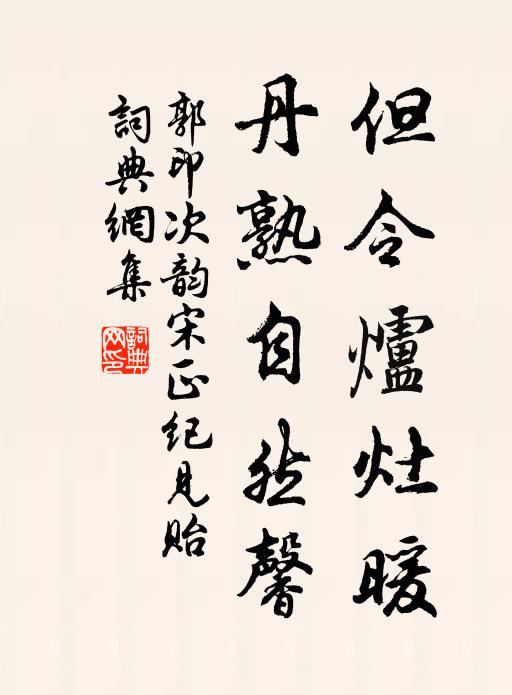 但令爐灶暖
丹熟自然馨
郭印次韵宋正紀見貽
詞典網集
詞典網印